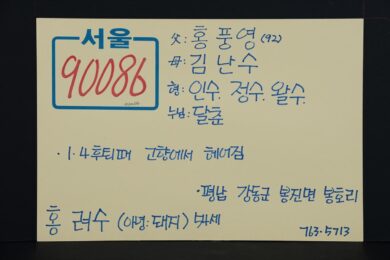 서울
90086
父: 홍풍영 (92)
母: 김난수
형: 인수. 정수. 왈수.
누님: 달춘
· 1.4후퇴때 고향에서 헤어짐
· 평남 강동군 봉진면 봉호리
홍 려수 (아명: 돼지) 54세
763-5713